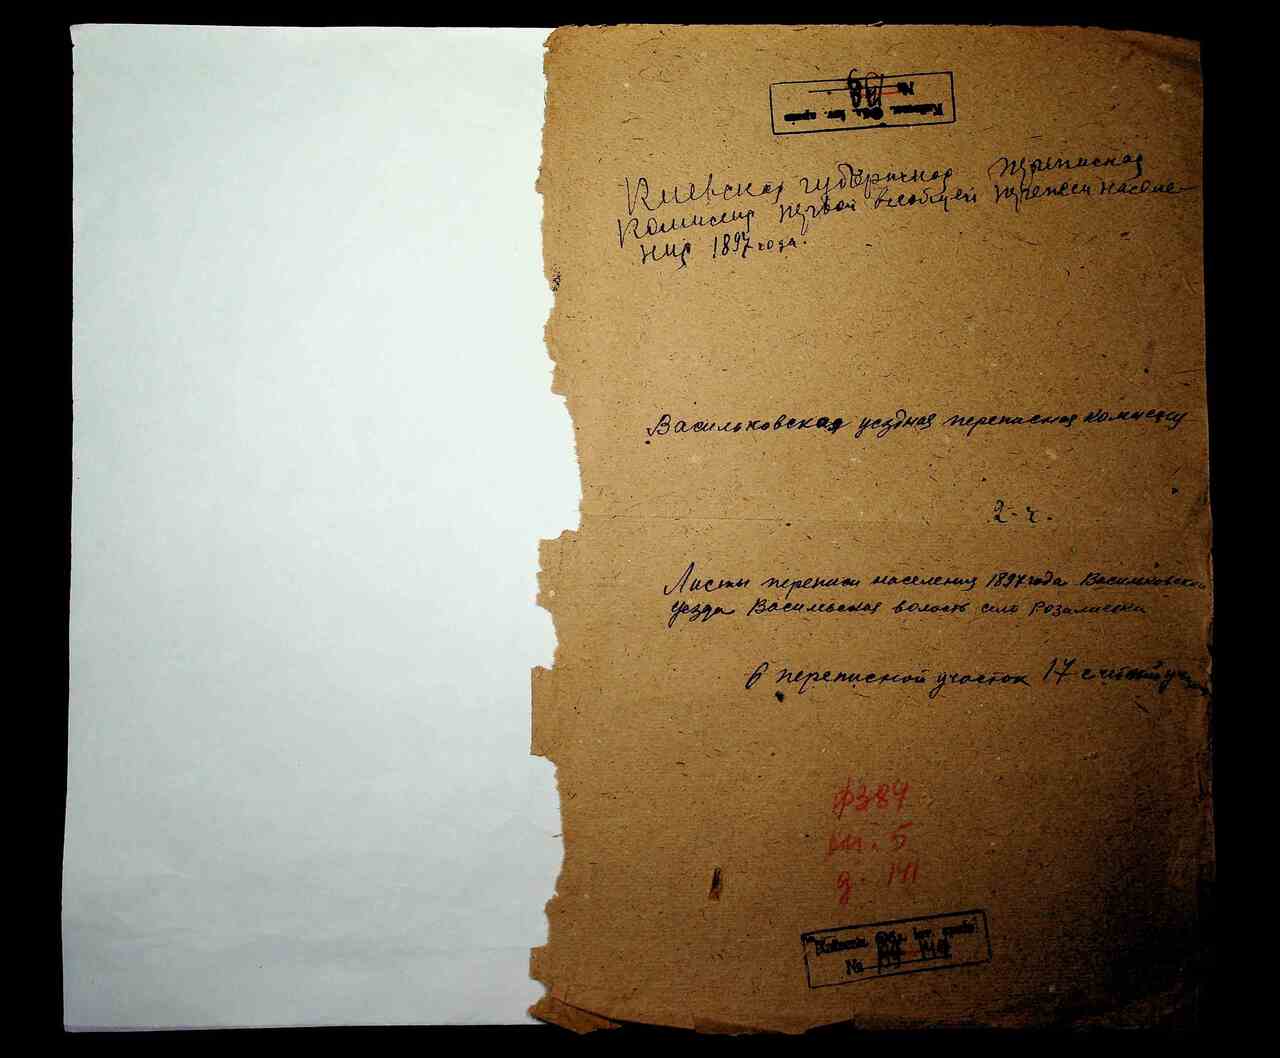 №
Київськ. Обл. Іст. архів
Киевская губернская переписная
Комиссия первой всеобщей переписи населе-
ния 1897 года.
Васильковская уездная переписная комиссия
2-ч.
Листы переписи населения 1897 года Васильковский
уезда Васильевская волость село Розалиевка
6 переписной участок 17 счетный
ф384
оп. 5
д. 141
Київськ. Обл. Іст. архів
№